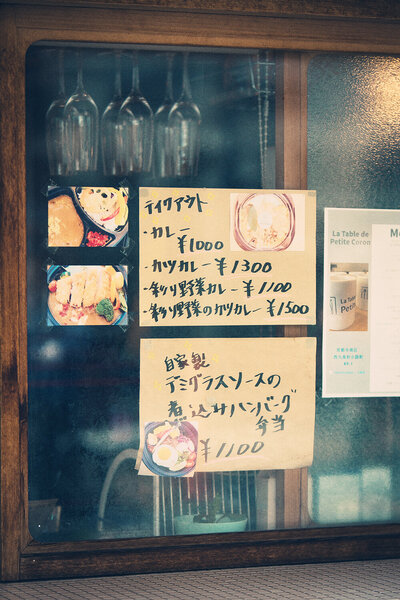 テイクアウト
・カレー
¥1000
・カツカレー ¥1300
・彩り野菜カレー ¥1100
・彩り野菜のカツカレー ¥1500
自家製
デミグラスソースの
煮込みハンバーグ
弁当
¥1100
La Table de
Petite Coron
La Table
Petite
M